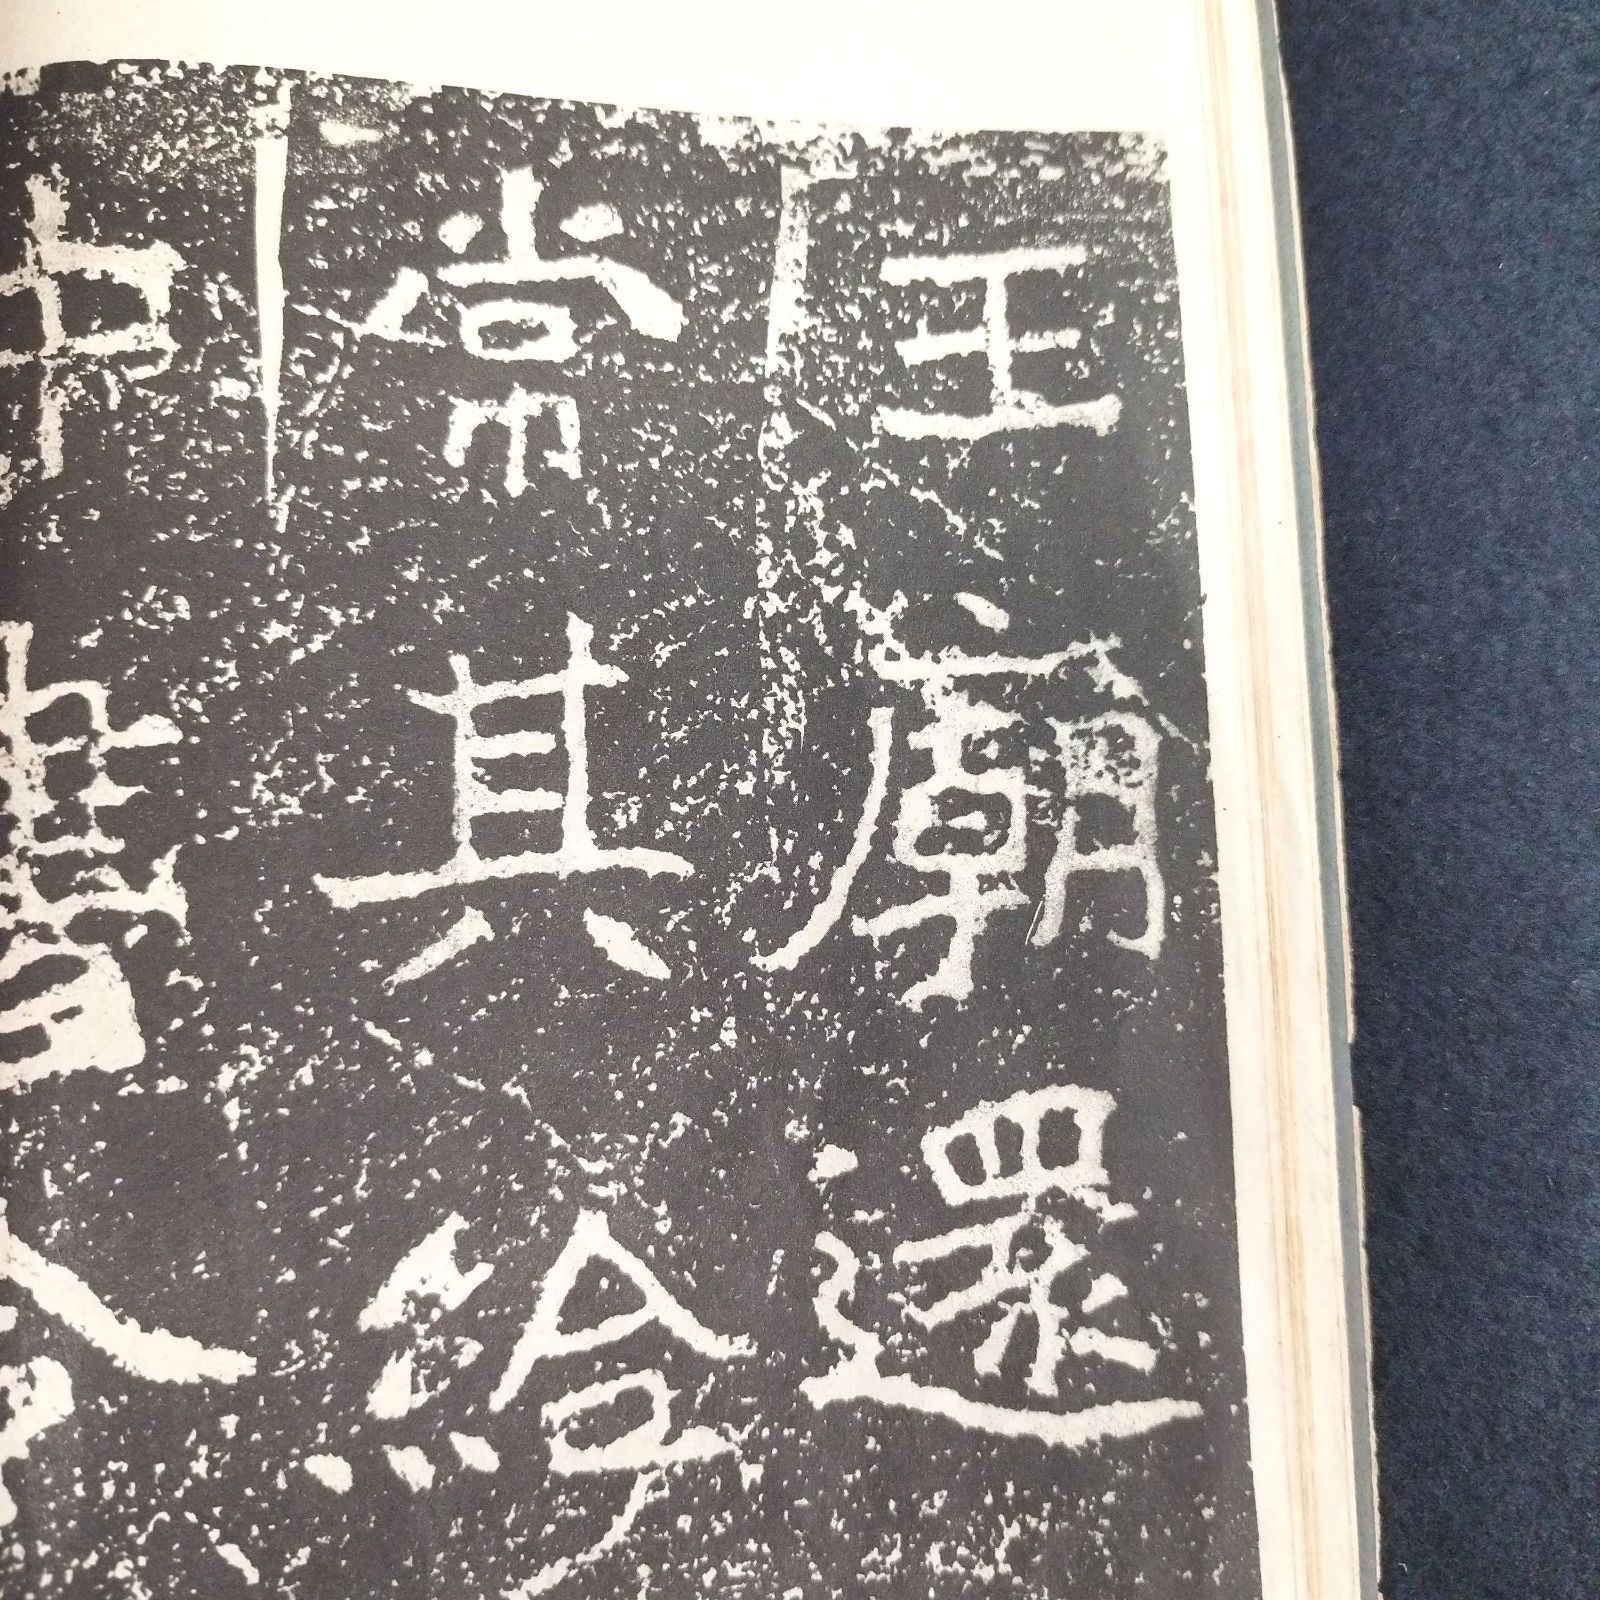 王廟還
常其給
中書